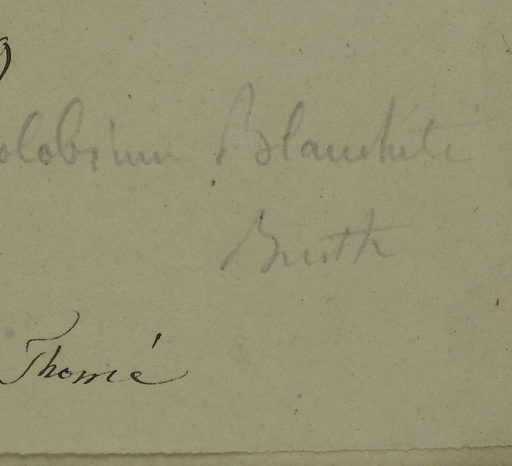 olobium Blancheti
Benth
Thomé